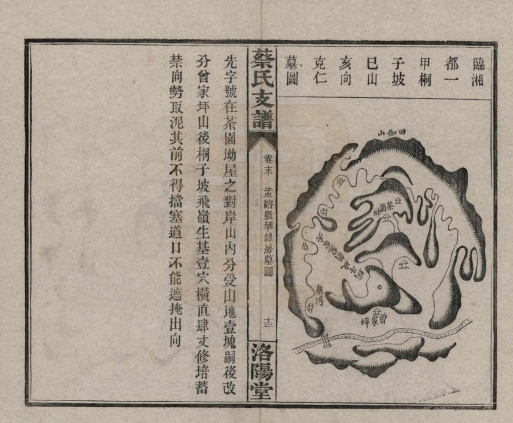 臨湘
都一
甲桐
子坡
巳山
亥向
克仁
墓圖
田伽山
茶園坳
曾家坪
蔡氏支譜
卷末
孟容
墓圖
十三
洛陽堂
先字號在茶園坳屋之對岸山內分受山地壹塊嗣後改
分曾家坪山後桐子坡飛嶺生基壹穴橫直肆丈修培蓄
禁向勢取泥其前不得擋塞道日不能遮掩出向